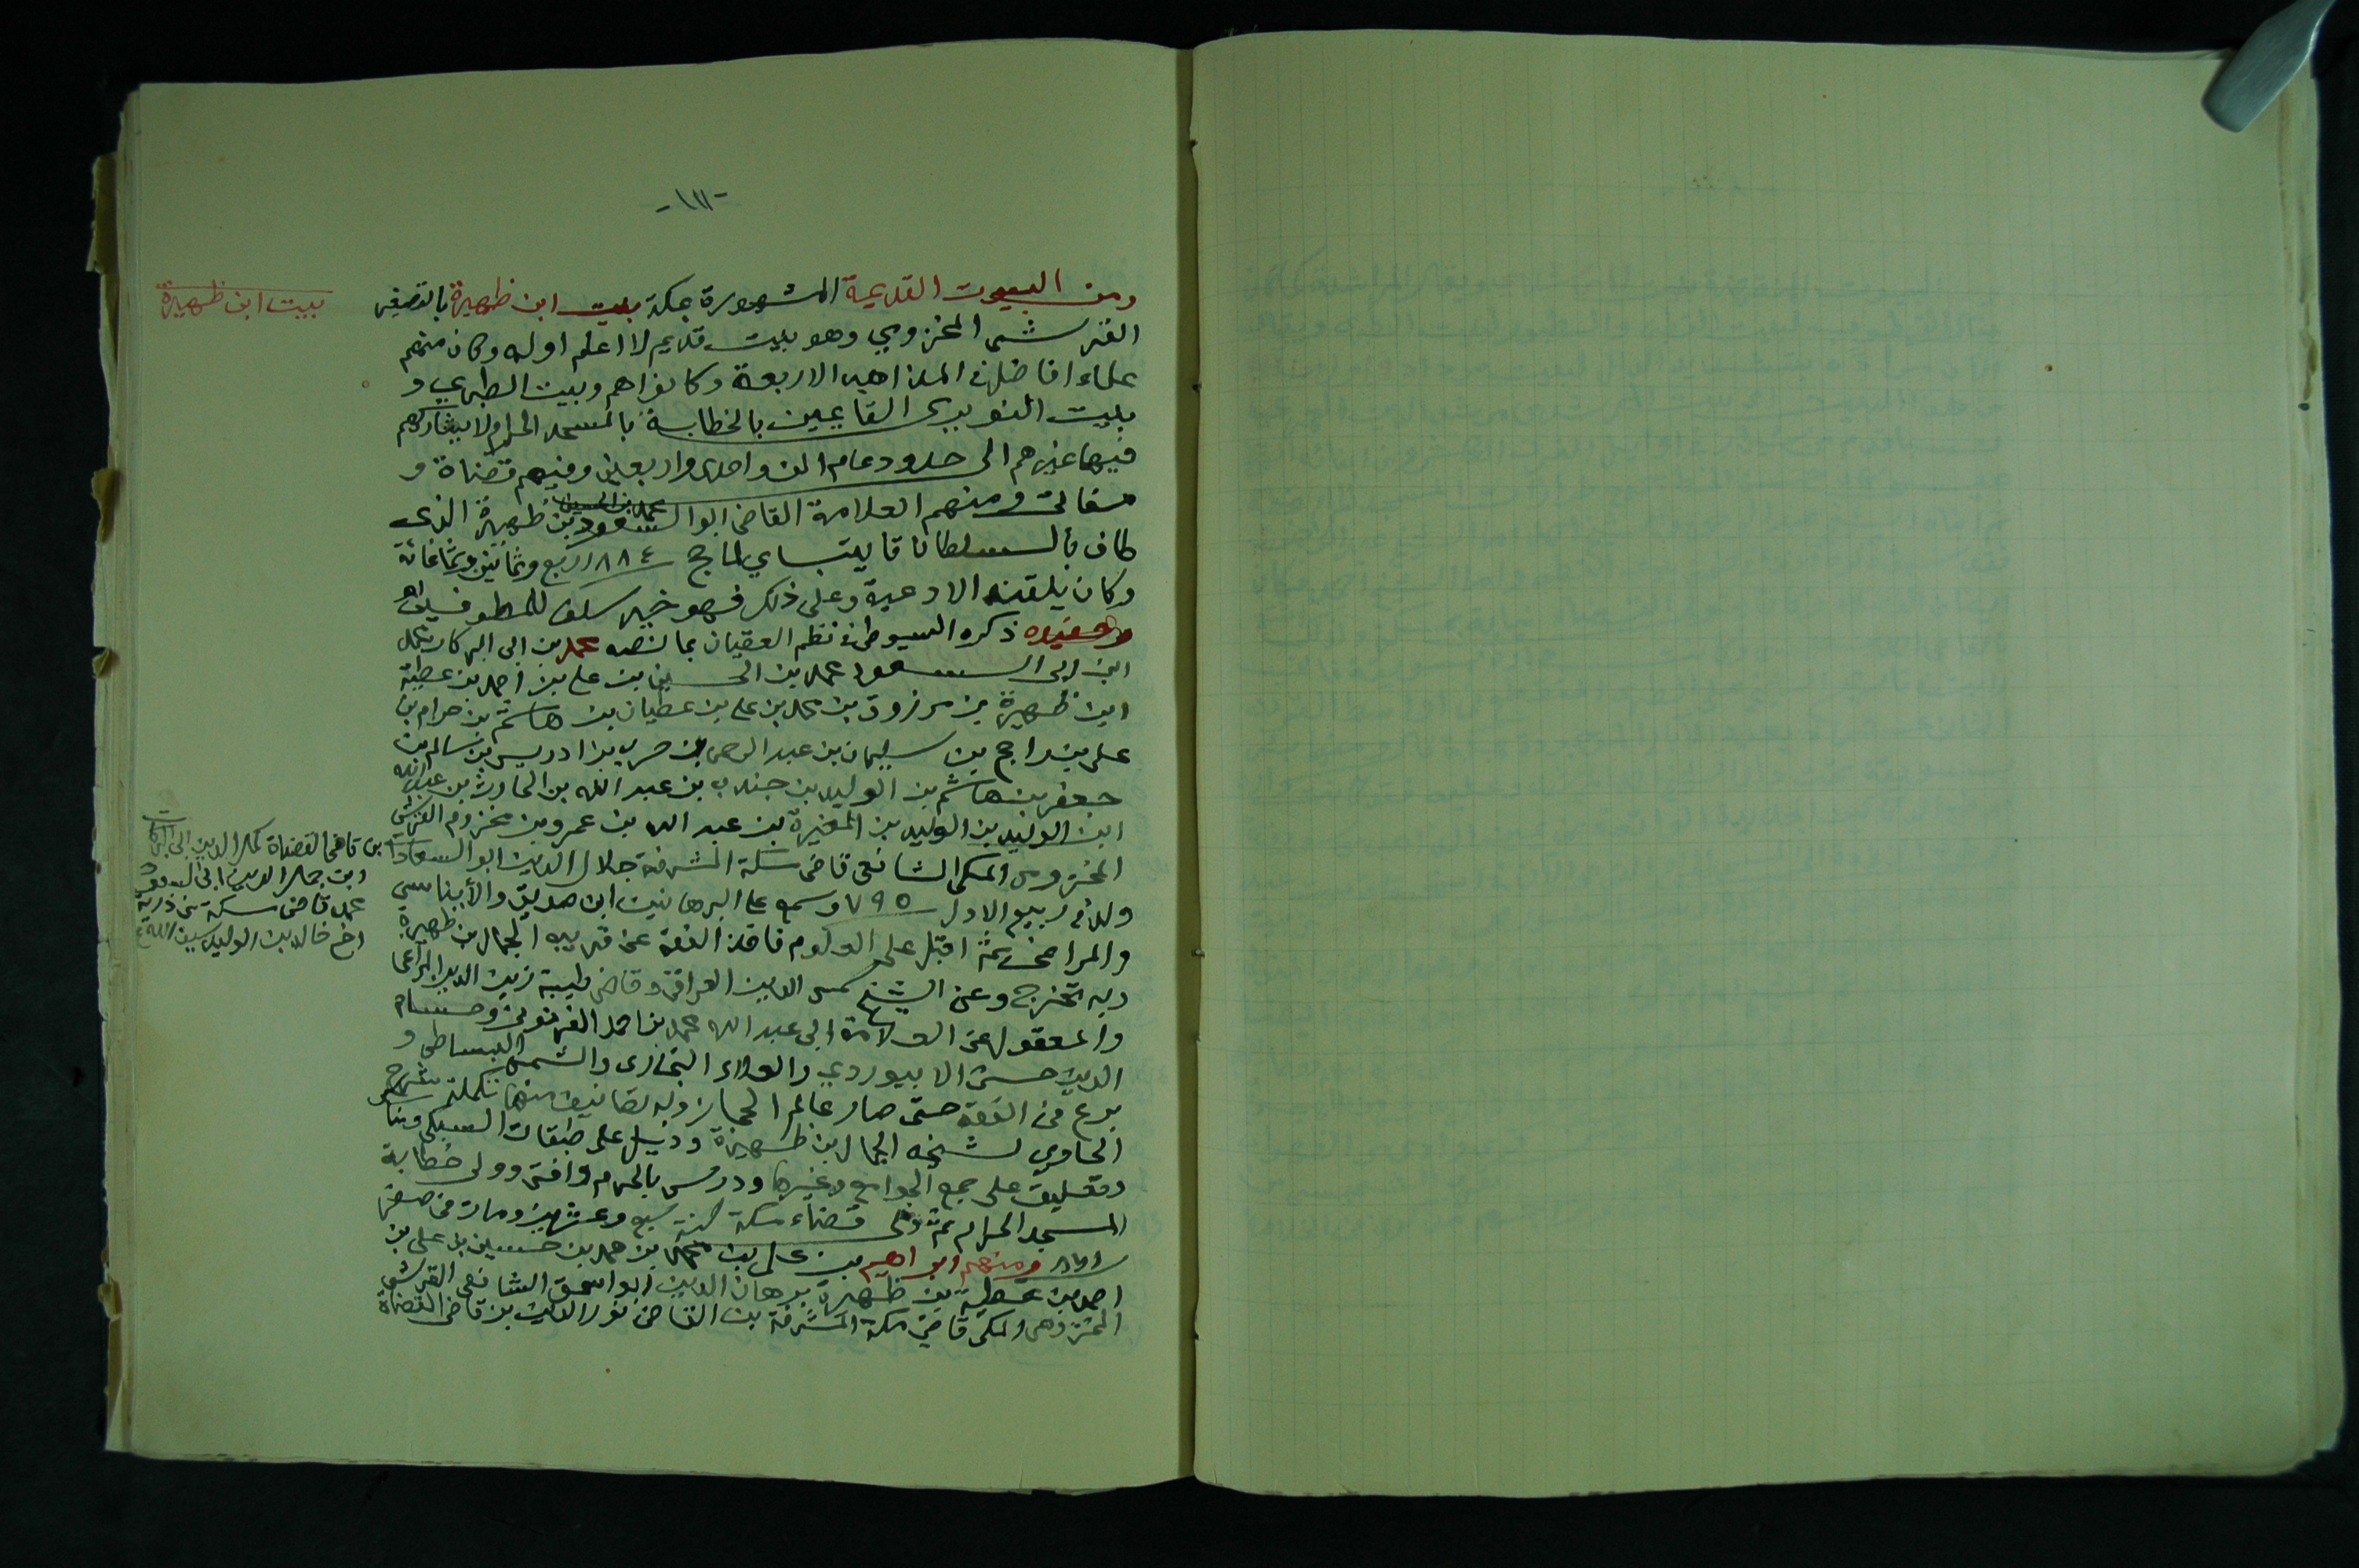 -١١١-
ومن البيوت القديمة المشهورة بمكة بيت ابن ظهيرة بالتصغير
بيت ابن ظهيرة
القرشى المخزومي وهو بيت قديم لا اعلم اوله وكان منهم
علماء افاضل في المذاهب الاربعة وكانوا هم وبيت الطبري و
بيت النويري القايمين بالخطابة بالمسجد الحرام ولا يشاركهم
فيها غيرهم الى حدود عام الف واحدى واربعين ومنهم قضاة و
ومنهم العلامة القاضى ابو السعود محمد بن الحسين بن ظهيرة الذى
طاف بالسلطان قايتباي لما حج ٨٨٤ اربع وثمانين وثمانمائة
وكان يلقنه الادعية وعلى ذلك فهو خير سلف للمطوفين اهـ
وحفيده ذكره السيوطى فى نظم العقيان بما نصه محمد بن ابى البركات محمد
ابن ابى السعود محمد بن الحسين بن على بن احمد بن عطية
ابن ظهيرة بن مرزوق بن محمد بن على بن عطيان بن هاشم بن حرام بن
على بن راجح بن سليمان بن عبد الرحمن بن حرب بن ادريس بن سالم بن
جعفر بن هاشم بن الوليد بن جندب بن عبد الله بن الحارث بن عبد الله
ابن الوليد بن الوليد بن المغيرة بن عبد الله بن عمرو بن مخزوم القرشى
المخزومى المكى الشافعى قاضى مكة المشرفة جلال الدين ابو السعادات
بن قاضى القضاة كمال الدين ابى البركات
ابن جمال الدين ابى السعود
محمد قاضى مكة من ذرية
اخ خالد بن الوليد سيف الله
ولد فى ربيع الاول ٧٩٥ وسمع على البرهانين ابن صديق والأبناسى
والمراغى ثم اقبل على العلوم فاخذ الفقة عن قريبه الجمال بن ظهيرة
وبه تخرج وعن الشيخ شمس الدين العراقى وقاضى طيبة زين الدين المراغى
والمعقول عن العلامة ابى عبد الله محمد بن احمد الوانوغى وحسام
الدين حسن الابيوردي والعلاء البخارى والشمس البساطى و
برع فى الفقة حتى صار عالم الحجاز وله تصانيف منها تكملة شرح
الحاوي لشيخه الجمال بن ظهيرة وذيل على طبقات السبكى
وتعليق على جمع الجوامع وغيرها ودرس بالحرم وافتى وولى خطابة
المسجد الحرام ثم ولى قضاء مكة سنة سبع وعشرين ومات فى صفر
٨٦١ ومنهم ابراهيم بن على بن محمد بن محمد بن حسين بن على بن
احمد بن عطية بن ظهيرة برهان الدين ابو اسحق الشافعى القرشى
المخزومى المكى قاضى مكة المشرفة بن القاضى نور الدين بن قاضى القضاة